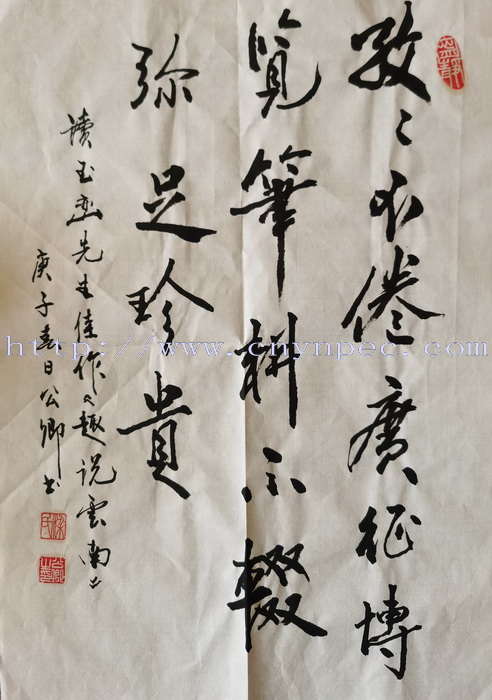 孜〻不倦廣征博
覽筆耕不輟
弥足珍貴
讀玉峦先生佳作《趣说雲南》
庚子春日公卿书
http://www.cnynpec.com